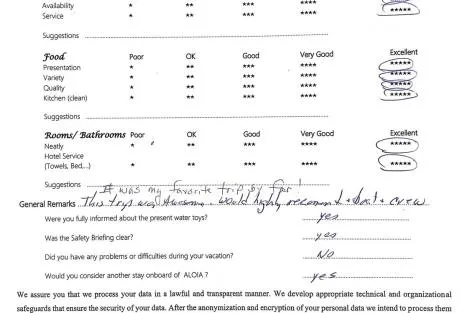 Availability * ** *** **** *****
Service * ** *** **** *****
Suggestions
Food Poor OK Good Very Good Excellent
Presentation * ** *** **** *****
Variety * ** *** **** *****
Quality * ** *** **** *****
Kitchen (clean) * ** *** **** *****
Suggestions
Rooms/ Bathrooms Poor OK Good Very Good Excellent
Neatly * ** *** **** *****
Hotel Service
(Towels, Bed,...) * ** *** **** *****
Suggestions It was my favorite trip by far!
General Remarks This trip was Awesome. Would highly recommend boat + crew
Were you fully informed about the present water toys? yes
Was the Safety Briefing clear? yes
Did you have any problems or difficulties during your vacation? No
Would you consider another stay onboard of ALOIA ? yes
We assure you that we process your data in a lawful and transparent manner. We develop appropriate technical and organizational
safeguards that ensure the security of your data. After the anonymization and encryption of your personal data we intend to process them